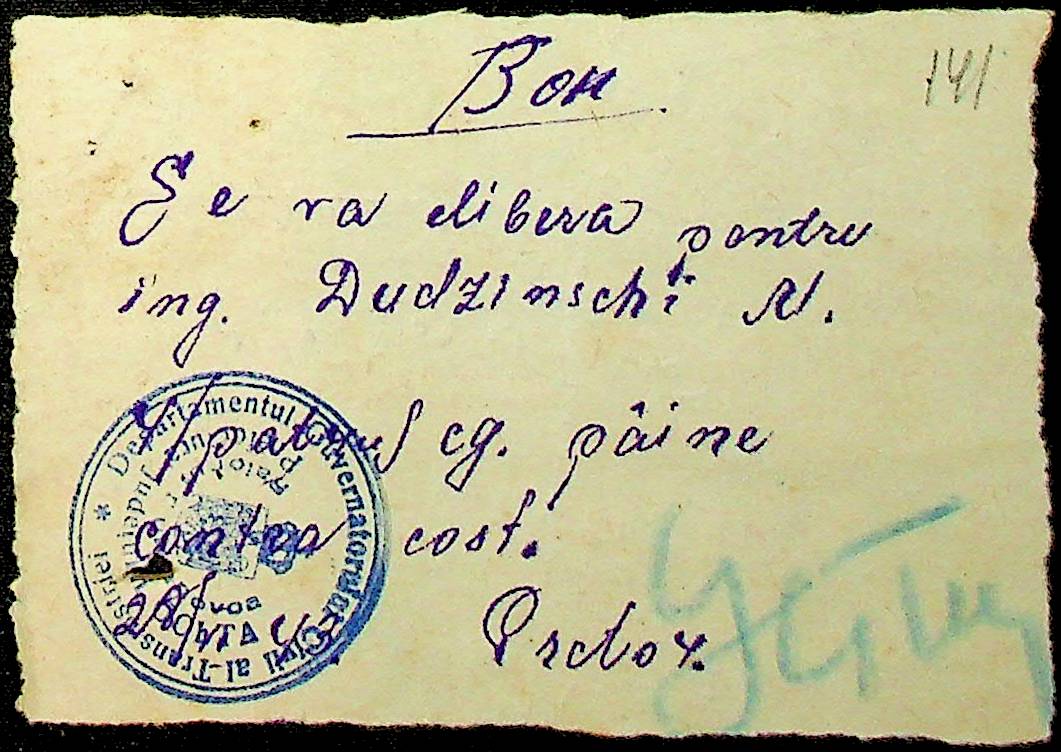 Bon
141
Se va elibera pentru
ing. Dudzinschi N.
4/patru/ cg. pâine
contra cost.
Departamentul Guvernatorului Civil al Transnistriei